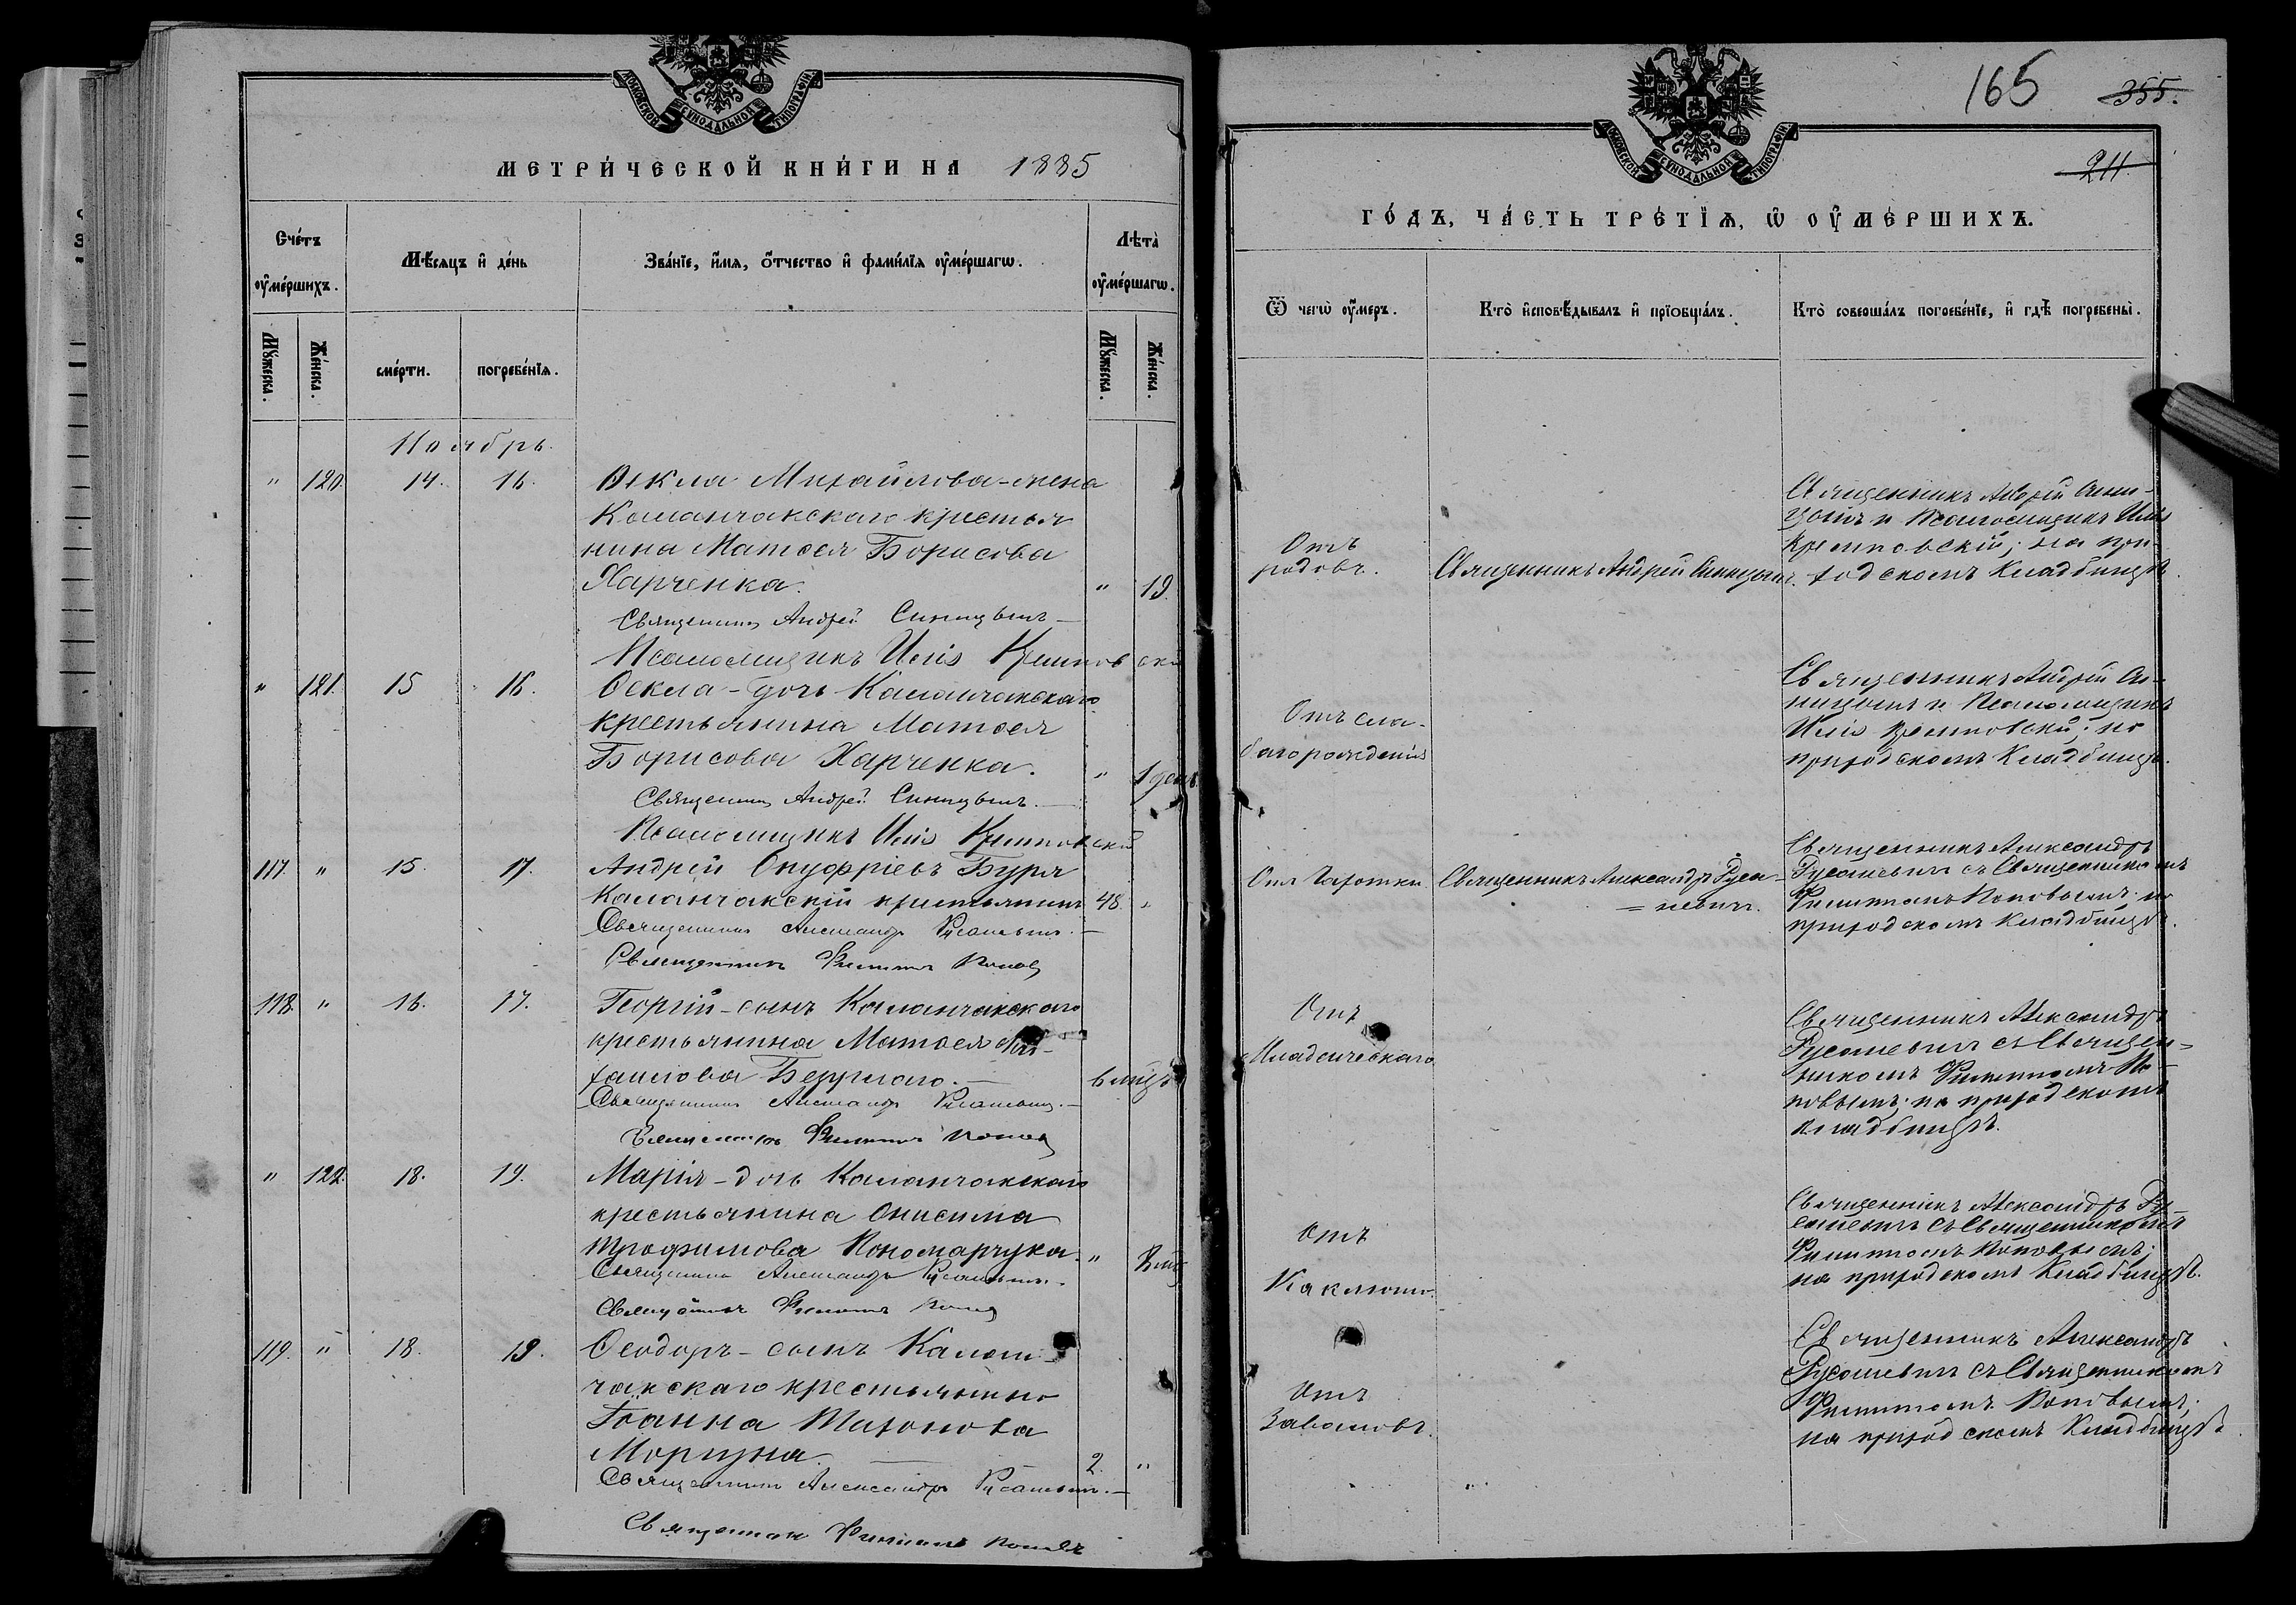 МОСКОВСКОЙ СѴНОДАЛЬНОЙ ТИПОГРАФІИ
МЕТРИ́ЧЕСКОЙ КНИ́ГИ НА 1885
Сче́тъ ᲂу҆ме́ршихъ.
Мѣ́сяцъ и҆ де́нь
Зва́нїе, и҆́мѧ, ѻ҆́тчество и҆ фами́лїѧ ᲂу҆ме́ршагѡ.
Лѣ́та ᲂу҆ме́ршагѡ.
Мꙋ́жеска.
Же́нска.
сме́рти.
погребе́нїѧ.
Мꙋ́жеска.
Же́нска.
Ноябрь.
" 120. 14. 16. Ѳекла Михайлова-жена
Каланчакскаго крестья
нина Матѳея Борисова
Харченка. " 19.
Священникъ Андрей Синицынъ
Псаломщикъ Илія Кремповскій
" 121. 15 16. Ѳекла-дочь Каланчакскаго
крестьянина Матѳея
Борисова Харченка. " 1 день.
Священникъ Андрей Синицынъ.
Псаломщикъ Илія Кремповскій
117. " 15. 17. Андрей Онуфріевъ Буря
Каланчакскій крестьянинъ 48. "
Священникъ Александръ Русаневичъ.
Священникъ Филиппъ Поповъ
118. " 16. 17. Георгій-сынъ Каланчакскаго
крестьянина Матѳея Ми-
хаилова Безруглаго. 6 мѣс.
Священникъ Александръ Русаневичъ.
Священникъ Филиппъ Поповъ
" 122. 18. 19. Марія-дочь Каланчакскаго
крестьянина Онисима
Трофимова Пономарчука. "
Священникъ Александръ Русаневичъ.
Священникъ Филиппъ Поповъ
119. " 18. 19. Ѳеодоръ-сынъ Калан-
чакскаго крестьянина
Іоанна Тихонова
Моргуна. 2. "
Священникъ Александръ Русаневичъ.
Священникъ Филиппъ Поповъ
165 355.
211.
МОСКОВСКОЙ СѴНОДАЛЬНОЙ ТИПОГРАФІИ
ГО́ДЪ, ЧА́СТЬ ТРЕ́ТЇѦ, Ѡ҆ ОУ҆МЕ́РШИХЪ.
Ѿ чегѡ̀ ᲂу҆́меръ.
Кто̀ и҆сповѣ́дывалъ и҆ прїѻбща́лъ.
Кто̀ соверша́лъ погребе́нїе, и҆ гдѣ̀ погребены̀.
Отъ
родовъ.
Священникъ Андрей Синицынъ.
Священникъ Андрей Сини-
цынъ и Псаломщикъ Илія
Кремповскій; на при-
ходскомъ кладбищѣ
Отъ сла-
баго рожденія
Священникъ Андрей Си-
ницынъ и Псаломщикъ
Илія Кремповскій; на
приходскомъ кладбищѣ.
Отъ Чахотки
Священникъ Александръ Руса-
=невичъ.
Священникъ Александръ
Русаневичъ съ Священникомъ
Филиппомъ Поповымъ; на
приходскомъ кладбищѣ.
Отъ
Младенческаго
Священникъ Александръ
Русаневичъ съ Священ=
никомъ Филиппомъ По-
повымъ; на приходскомъ
кладбищѣ.
Отъ
Каклюша.
Священникъ Александръ Ру-
саневичъ съ Священникомъ
Филиппомъ Поповымъ;
на приходскомъ кладбищѣ.
Отъ
Завалокъ.
Священникъ Александръ
Русаневичъ съ Священникомъ
Филиппомъ Поповымъ;
на приходскомъ кладбищѣ.